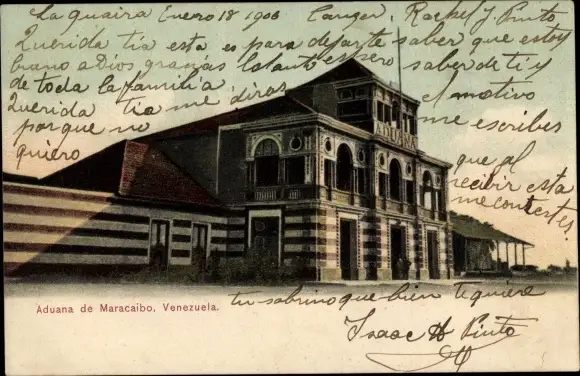 La quaira Enero 18 1906
Querida tia esta es para dejarte saber que estoy
bueno a Dios gracias lo tanto espero saber de ti y
de toda la familia
Querida tia me diras
porque no
quiero
Rachel J Pinto
el motivo
me escribes
que al
recivir esta
me contestes
ADUANA
Aduana de Maracaibo, Venezuela.
tu sobrino que bien te quiere
Isaac H Pinto